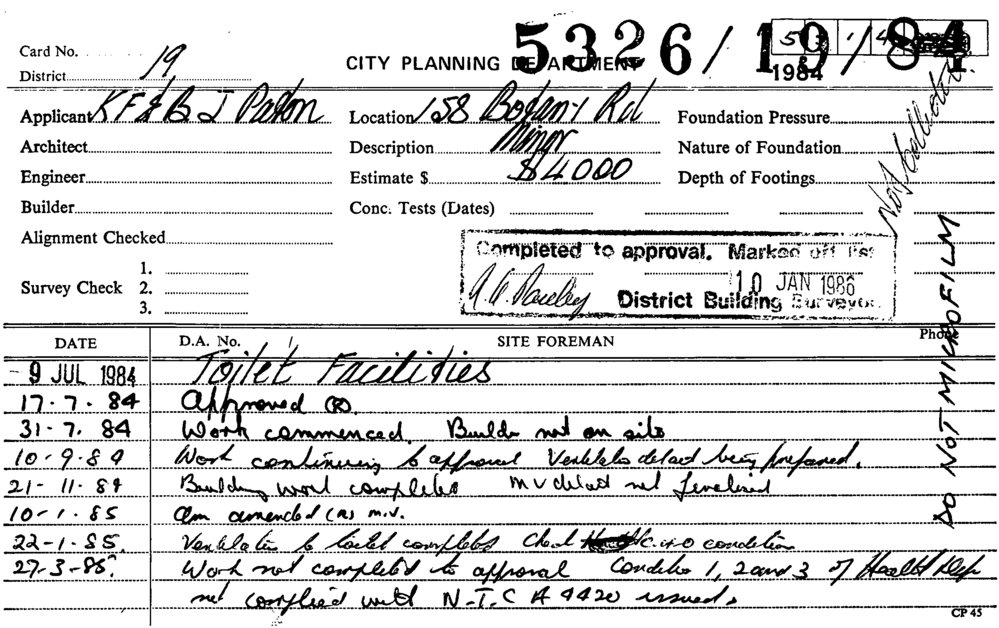 5326/19/84
Card No.
District 19
CITY PLANNING DEPARTMENT
1984
Applicant K F & B J Paton Location 158 Botany Rd Foundation Pressure
Architect Description Minor Nature of Foundation
Engineer Estimate $ $4000 Depth of Footings
Builder Conc. Tests (Dates)
Alignment Checked
Survey Check 1.
2.
3.
Completed to approval. Marked off list
10 JAN 1986
District Building Surveyor.
Not collected.
DO NOT MICROFILM
DATE D.A. No. SITE FOREMAN Phone
- 9 JUL 1984 Toilet Facilities
17-7-84 Approved
31-7-84 Work commenced. Builder not on site
10-9-84 Work continuing to approval Ventilation detail being prepared.
21-11-84 Building work completed m v detail not finalised
10-1-85 amended m.v.
22-1-85. Ventilation to toilet completed Check condition
27-3-85. Work not completed to approval Condition 1, 2 and 3 of Health Dep
not complied with N.T.C A 4420 issued.
CP 45